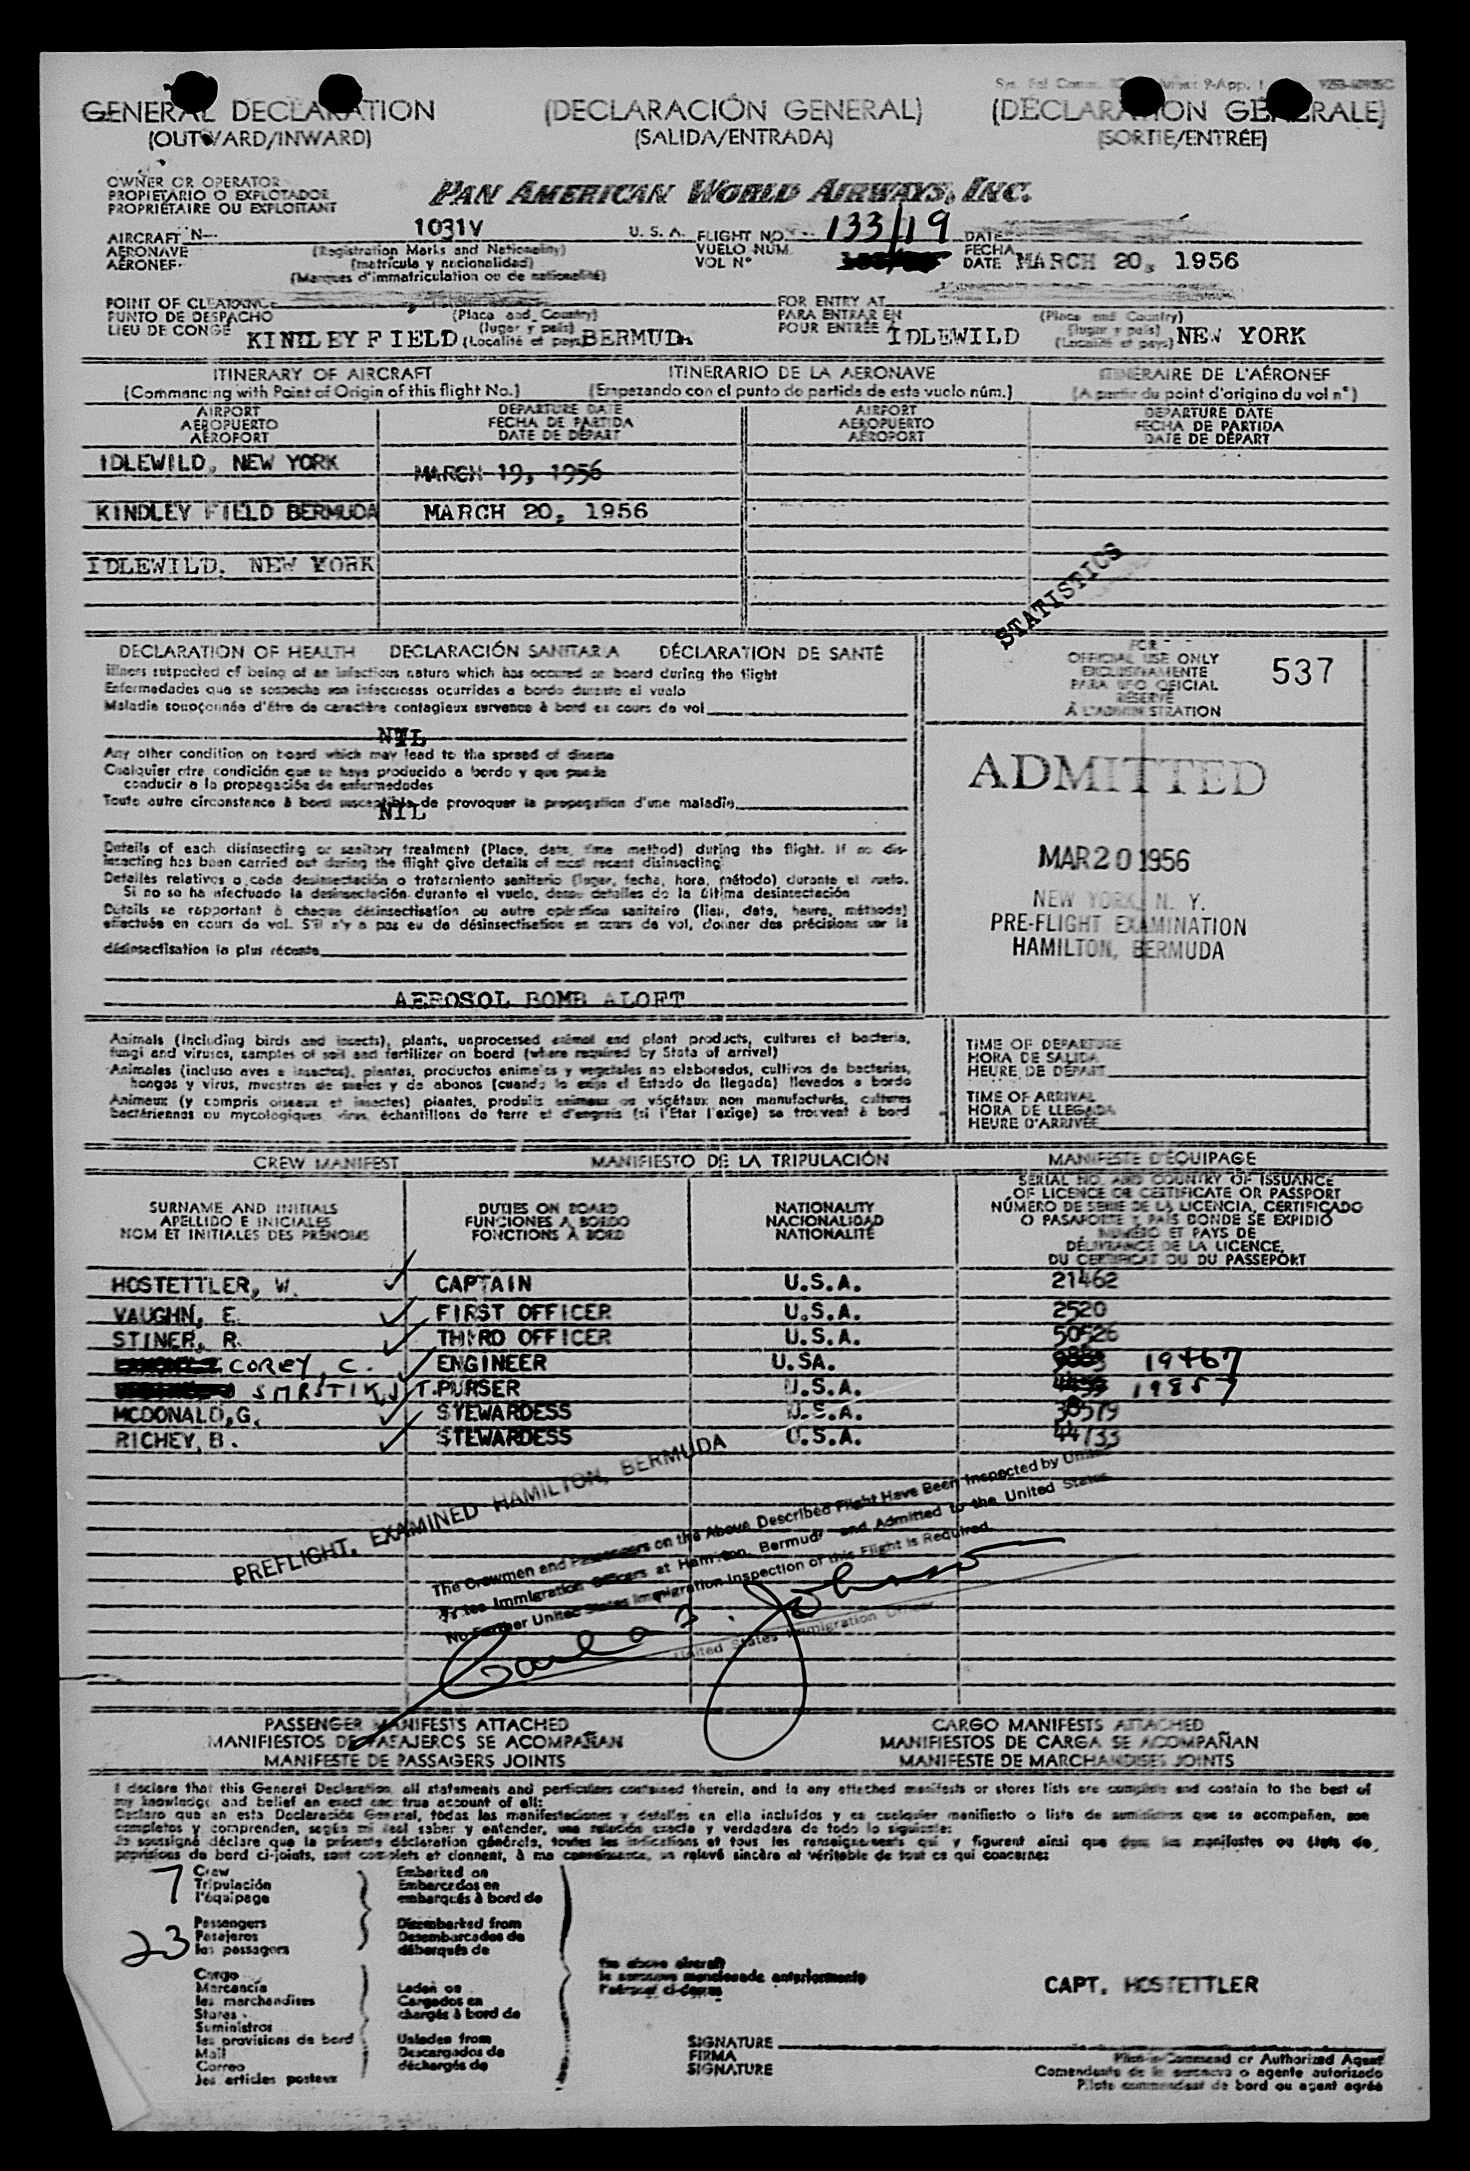 GENERAL DECLARATION (DECLARACIÓN GENERAL) (DÉCLARATION GÉNÉRALE)
(OUTWARD/INWARD) (SALIDA/ENTRADA) (SORTIE/ENTRÉE)
OWNER OR OPERATOR
PROPIETARIO O EXPLOTADOR
PROPRIÉTAIRE OU EXPLOITANT
PAN AMERICAN WORLD AIRWAYS, INC.
AIRCRAFT N- 1031V U. S. A. FLIGHT NO. 133/19 DATE
AERONAVE (Registration Marks and Nationality) VUELO NÚM. FECHA
AÉRONEF (matrícula y nacionalidad) VOL N° DATE MARCH 20, 1956
(Marques d'immatriculation ou de nationalité)
POINT OF CLEARANCE (Place and Country) FOR ENTRY AT (Place and Country)
PUNTO DE DESPACHO (lugar y país) PARA ENTRAR EN (lugar y país)
LIEU DE CONGÉ KINDLEY FIELD (Localité et pays) BERMUDA POUR ENTRÉE À IDLEWILD (Localité et pays) NEW YORK
ITINERARY OF AIRCRAFT ITINERARIO DE LA AERONAVE ITINÉRAIRE DE L'AÉRONEF
(Commencing with Point of Origin of this flight No.) (Empezando con el punto de partida de este vuelo núm.) (A partir du point d'origine du vol n°)
AIRPORT DEPARTURE DATE AIRPORT DEPARTURE DATE
AEROPUERTO FECHA DE PARTIDA AEROPUERTO FECHA DE PARTIDA
AÉROPORT DATE DE DÉPART AÉROPORT DATE DE DÉPART
IDLEWILD, NEW YORK MARCH 19, 1956
KINDLEY FIELD BERMUDA MARCH 20, 1956
IDLEWILD. NEW YORK
STATISTICS
DECLARATION OF HEALTH DECLARACIÓN SANITARIA DÉCLARATION DE SANTÉ
Illness suspected of being of an infectious nature which has occured on board during the flight
Enfermedades que se sospecha son infecciosas ocurridas a bordo durante el vuelo
Maladie soupçonnée d'être de caractère contagieux survenue à bord en cours de vol
NIL
Any other condition on board which may lead to the spread of disease
Cualquier otra condición que se haya producido a bordo y que pueda
conducir a la propagación de enfermedades
Toute autre circonstance à bord susceptible de provoquer la propagation d'une maladie
NIL
Details of each disinsecting or sanitary treatment (Place, date, time method) during the flight. If no dis-
insecting has been carried out during the flight give details of most recent disinsecting
Detalles relativos a cada desinsectación o tratamiento sanitario (lugar, fecha, hora, método) durante el vuelo.
Si no se ha efectuado la desinsectación durante el vuelo, dense detalles de la última desinsectación
Détails se rapportant à chaque désinsectisation ou autre opération sanitaire (lieu, date, heure, méthode)
effectuée en cours de vol. S'il n'y a pas eu de désinsectisation en cours de vol, donner des précisions sur la
désinsectisation la plus récente
AEROSOL BOMB ALOFT
FOR
OFFICIAL USE ONLY
EXCLUSIVAMENTE
PARA USO OFICIAL
RÉSERVÉ
À L'ADMINISTRATION
537
ADMITTED
MAR 20 1956
NEW YORK, N. Y.
PRE-FLIGHT EXAMINATION
HAMILTON, BERMUDA
Animals (Including birds and insects), plants, unprocessed animal and plant products, cultures of bacteria,
fungi and viruses, samples of soil and fertilizer on board (where required by State of arrival)
Animales (incluso aves e insectos), plantas, productos animales y vegetales no elaborados, cultivos de bacterias,
hongos y virus, muestras de suelos y de abonos (cuando lo exija el Estado de llegada) llevados a bordo
Animaux (y compris oiseaux et insectes) plantes, produits animaux ou végétaux non manufacturés, cultures
bactériennes ou mycologiques virus, échantillons de terre et d'engrais (si l'Etat l'exige) se trouvent à bord
TIME OF DEPARTURE
HORA DE SALIDA
HEURE DE DÉPART
TIME OF ARRIVAL
HORA DE LLEGADA
HEURE D'ARRIVÉE
CREW MANIFEST MANIFIESTO DE LA TRIPULACIÓN MANIFESTE D'ÉQUIPAGE
SURNAME AND INITIALS
APELLIDO E INICIALES
NOM ET INITIALES DES PRÉNOMS
DUTIES ON BOARD
FUNCIONES A BORDO
FONCTIONS À BORD
NATIONALITY
NACIONALIDAD
NATIONALITÉ
SERIAL NO. AND COUNTRY OF ISSUANCE
OF LICENCE OR CERTIFICATE OR PASSPORT
NÚMERO DE SERIE DE LA LICENCIA, CERTIFICADO
O PASAPORTE Y PAÍS DONDE SE EXPIDIÓ
NUMÉRO ET PAYS DE
DÉLIVRANCE DE LA LICENCE,
DU CERTIFICAT OU DU PASSEPORT
HOSTETTLER, W. CAPTAIN U.S.A. 21462
VAUGHN, E. FIRST OFFICER U.S.A. 2520
STINER, R. THIRD OFFICER U.S.A. 50526
COREY, C. ENGINEER U.SA. 19467
SMRSTIK, T. PURSER U.S.A. 19857
MCDONALD,G. STEWARDESS U.S.A. 38519
RICHEY, B. STEWARDESS U.S.A. 44733
PREFLIGHT, EXAMINED HAMILTON, BERMUDA
The Crewmen and Passengers on the Above Described Flight Have Been Inspected by United
States Immigration Officers at Hamilton, Bermuda and Admitted to the United States
No Further United States Immigration Inspection of this Flight is Required.
United States Immigration Officer
PASSENGER MANIFESTS ATTACHED CARGO MANIFESTS ATTACHED
MANIFIESTOS DE PASAJEROS SE ACOMPAÑAN MANIFIESTOS DE CARGA SE ACOMPAÑAN
MANIFESTE DE PASSAGERS JOINTS MANIFESTE DE MARCHANDISES JOINTS
I declare that this General Declaration, all statements and particulars contained therein, and in any attached manifests or stores lists are complete and contain to the best of
my knowledge and belief an exact and true account of all:
Declaro que en esta Declaración General, todas las manifestaciones y detalles en ella incluídos y en cualquier manifiesto o lista de suministros que se acompañen, son
completos y comprenden, según mi leal saber y entender, una relación exacta y verdadera de todo lo siguiente:
Je soussigné déclare que la présente déclaration générale, toutes les indications et tous les renseignements qui y figurent ainsi que dans les manifestes ou états de
provisions de bord ci-joints, sont complets et donnent, à ma connaissance, un relevé sincère et véritable de tout ce qui concerne:
7 Crew
Tripulación
l'équipage
23 Passengers
Pasajeros
les passagers
Cargo
Mercancía
les marchandises
Stores
Suministros
les provisions de bord
Mail
Correo
les articles postaux
Embarked on
Embarcados en
embarqués à bord de
Disembarked from
Desembarcados de
débarqués de
Laden on
Cargados en
chargés à bord de
Unladen from
Descargados de
déchargés de
the above aircraft
la aeronave mencionada anteriormente
l'aéronef ci-dessus
CAPT. HOSTETTLER
SIGNATURE
FIRMA
SIGNATURE
Pilot-in-Command or Authorized Agent
Comandante de la aeronave o agente autorizado
Pilote commandant de bord ou agent agréé